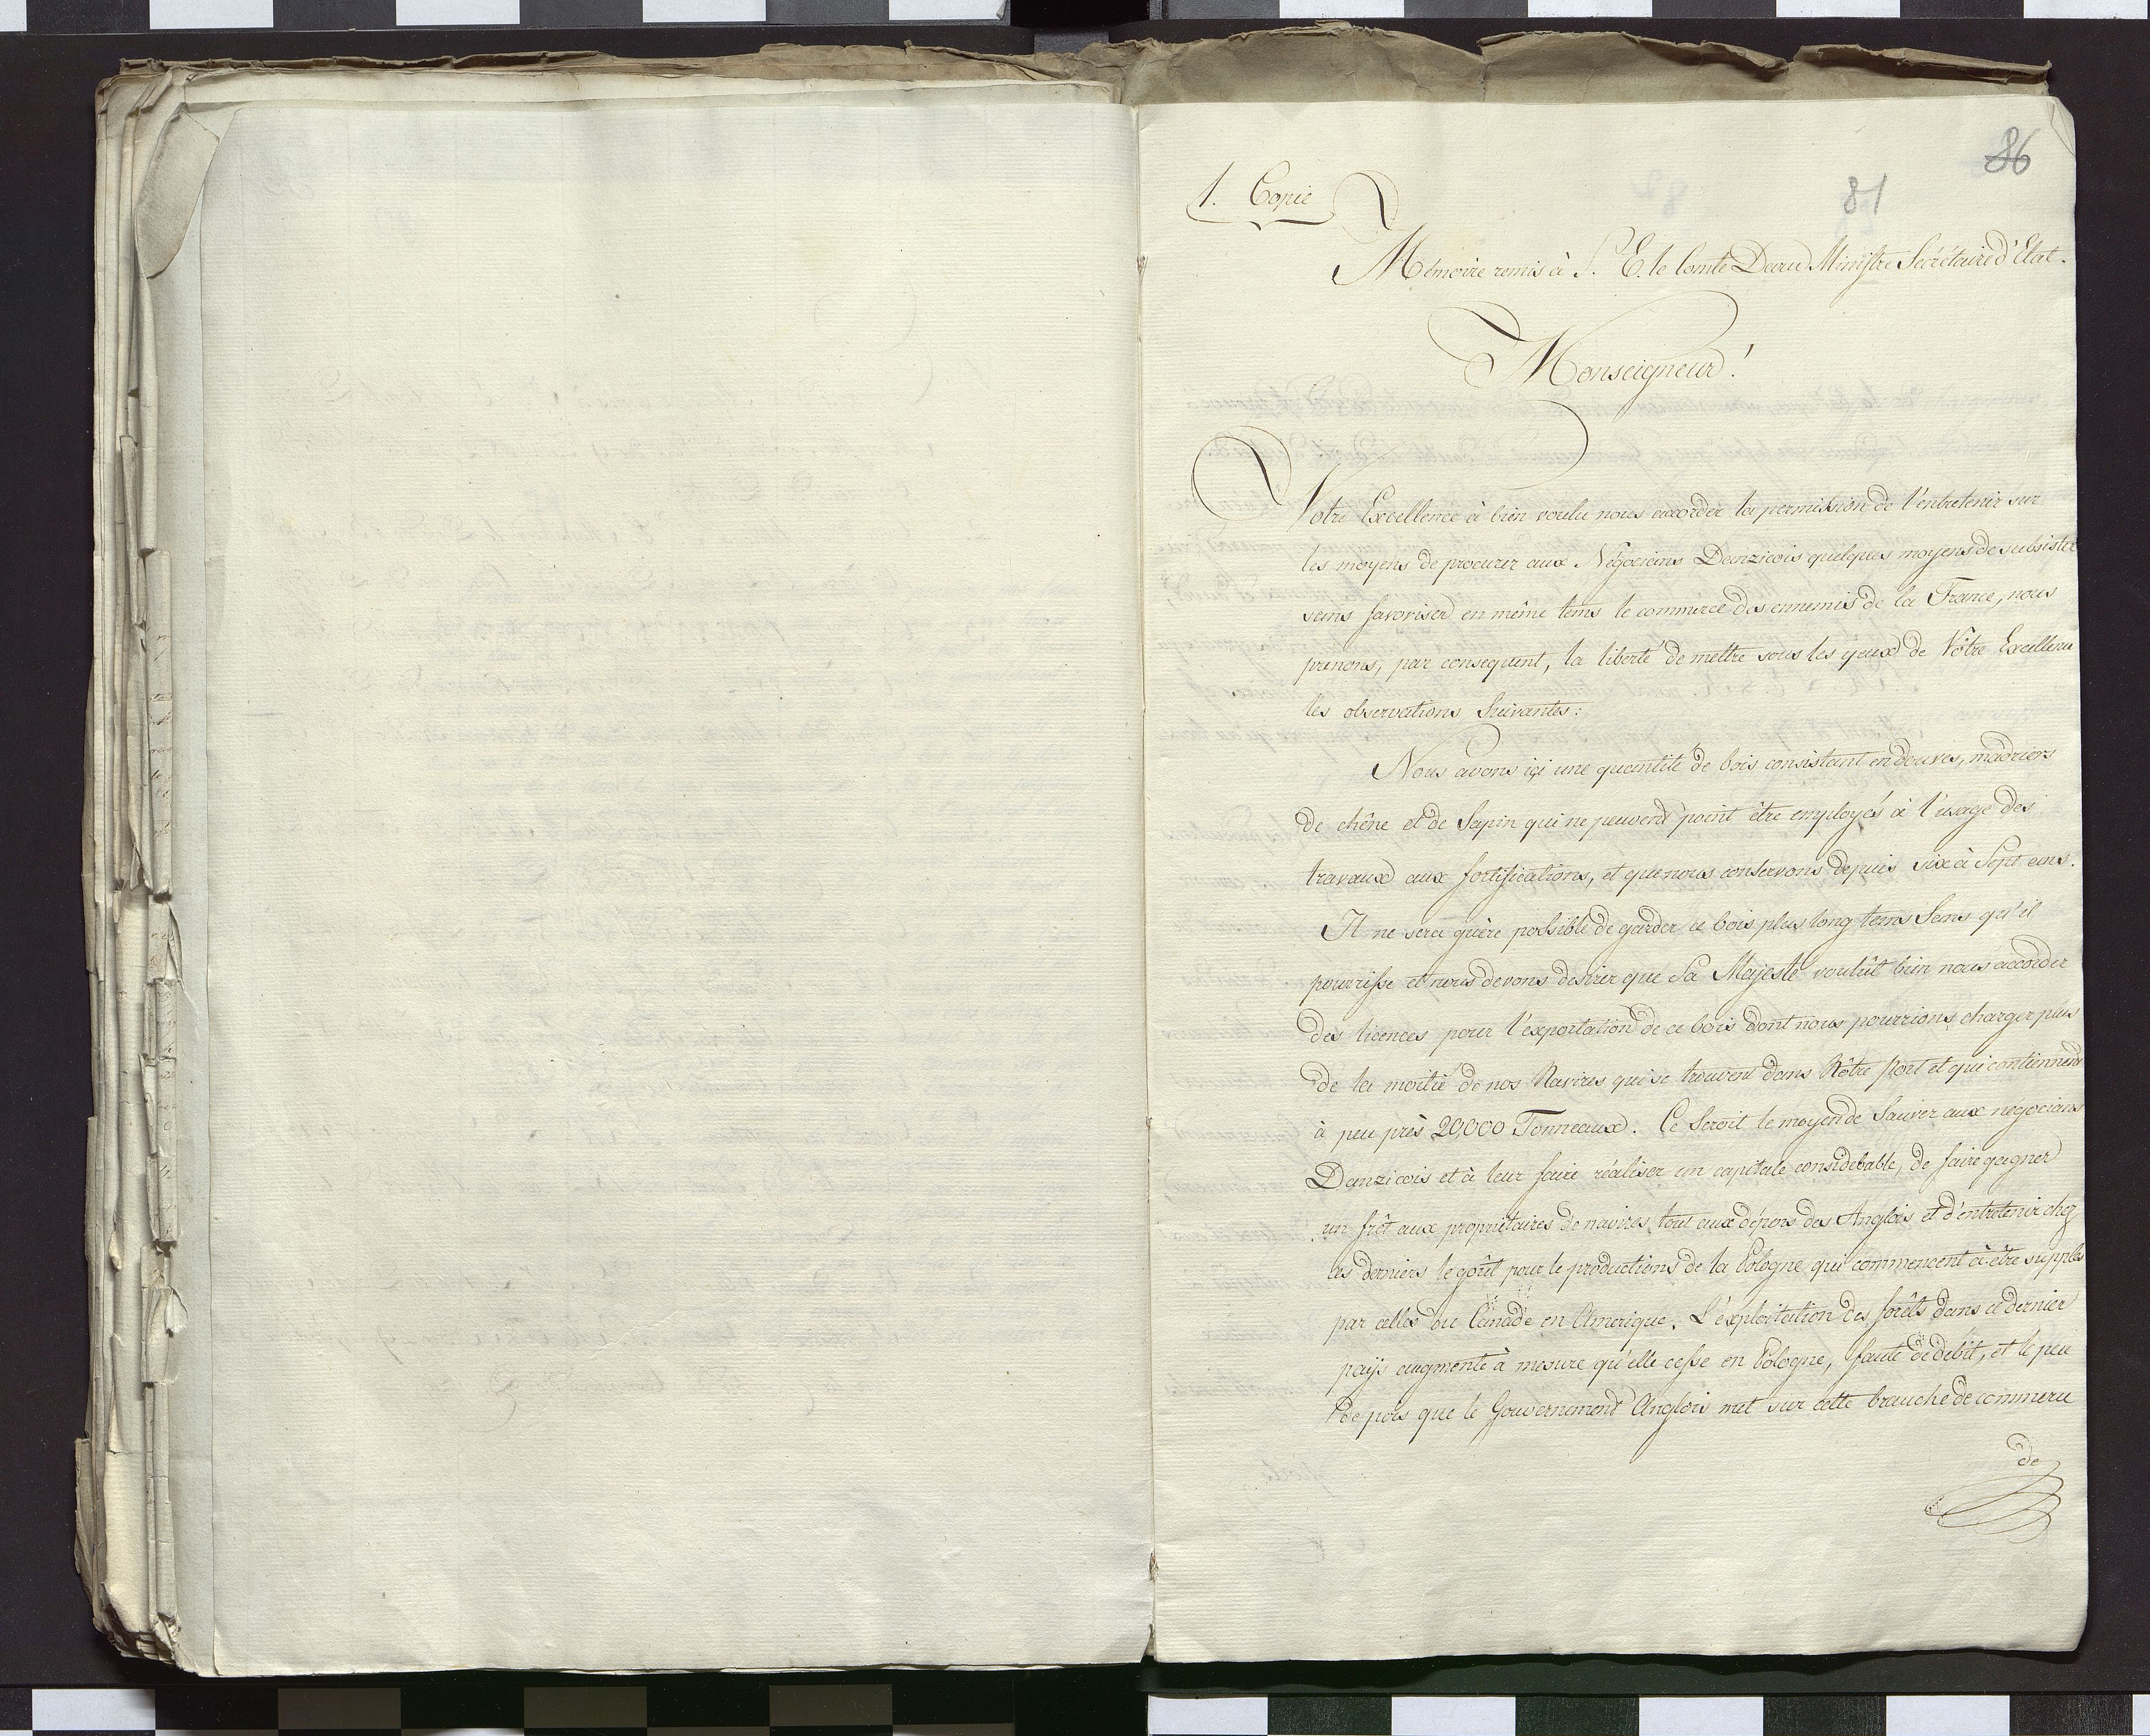 86
81
1. Copie
Mémoire remis à S. E. le Comte Daru Ministre Secrétaire d'Etat.
Monseigneur!
Votre Excellence à bien voulu nous accorder la permission de l'entretenir sur
les moyens de procurer aux Négocians Danzicois quelques moyens de subsister
sans favoriser en même tems le commerce des ennemis de la France, nous
prenons, par consequent, la liberté de mettre sous les yeux de Vôtre Excellence
les observations Suivantes:
Nous avons içi une quantité de bois consistant en douves, madriers
de chêne et de Sapin qui ne peuvent point être employés à l'usage des
travaux aux fortifications, et que nous conservons depuis six à Sept ans.
Il ne sera guère possible de garder ce bois plus long tems Sans qu'il
pourrisse et nous devons desirer que Sa Majesté voulût bien nous accorder
des licences pour l'exportation de ce bois dont nous pourrions charger plus
de la moitié de nos Navires qui se trouvent dans Nôtre Port et qui contiennent
à peu près 20,000 Tonneaux. Ce Seroit le moyen de Sauver aux négocians
Danzicois et à leur faire réaliser un capitale considebable, de faire gagner
un frêt aux propriétaires de navires, tout aux dépens des Anglois, et d'entretenir chez
ces derniers le goût pour le productions de la Pologne qui commencent à être supplés
par celles du Canade en Amerique. L'exploitation des forêts dans ce dernier
pays augmente à mesure qu'elle cesse en Pologne, faute de debit, et le peu
de pois que le Gouvernement Anglois met sur cette branche de commerce
de